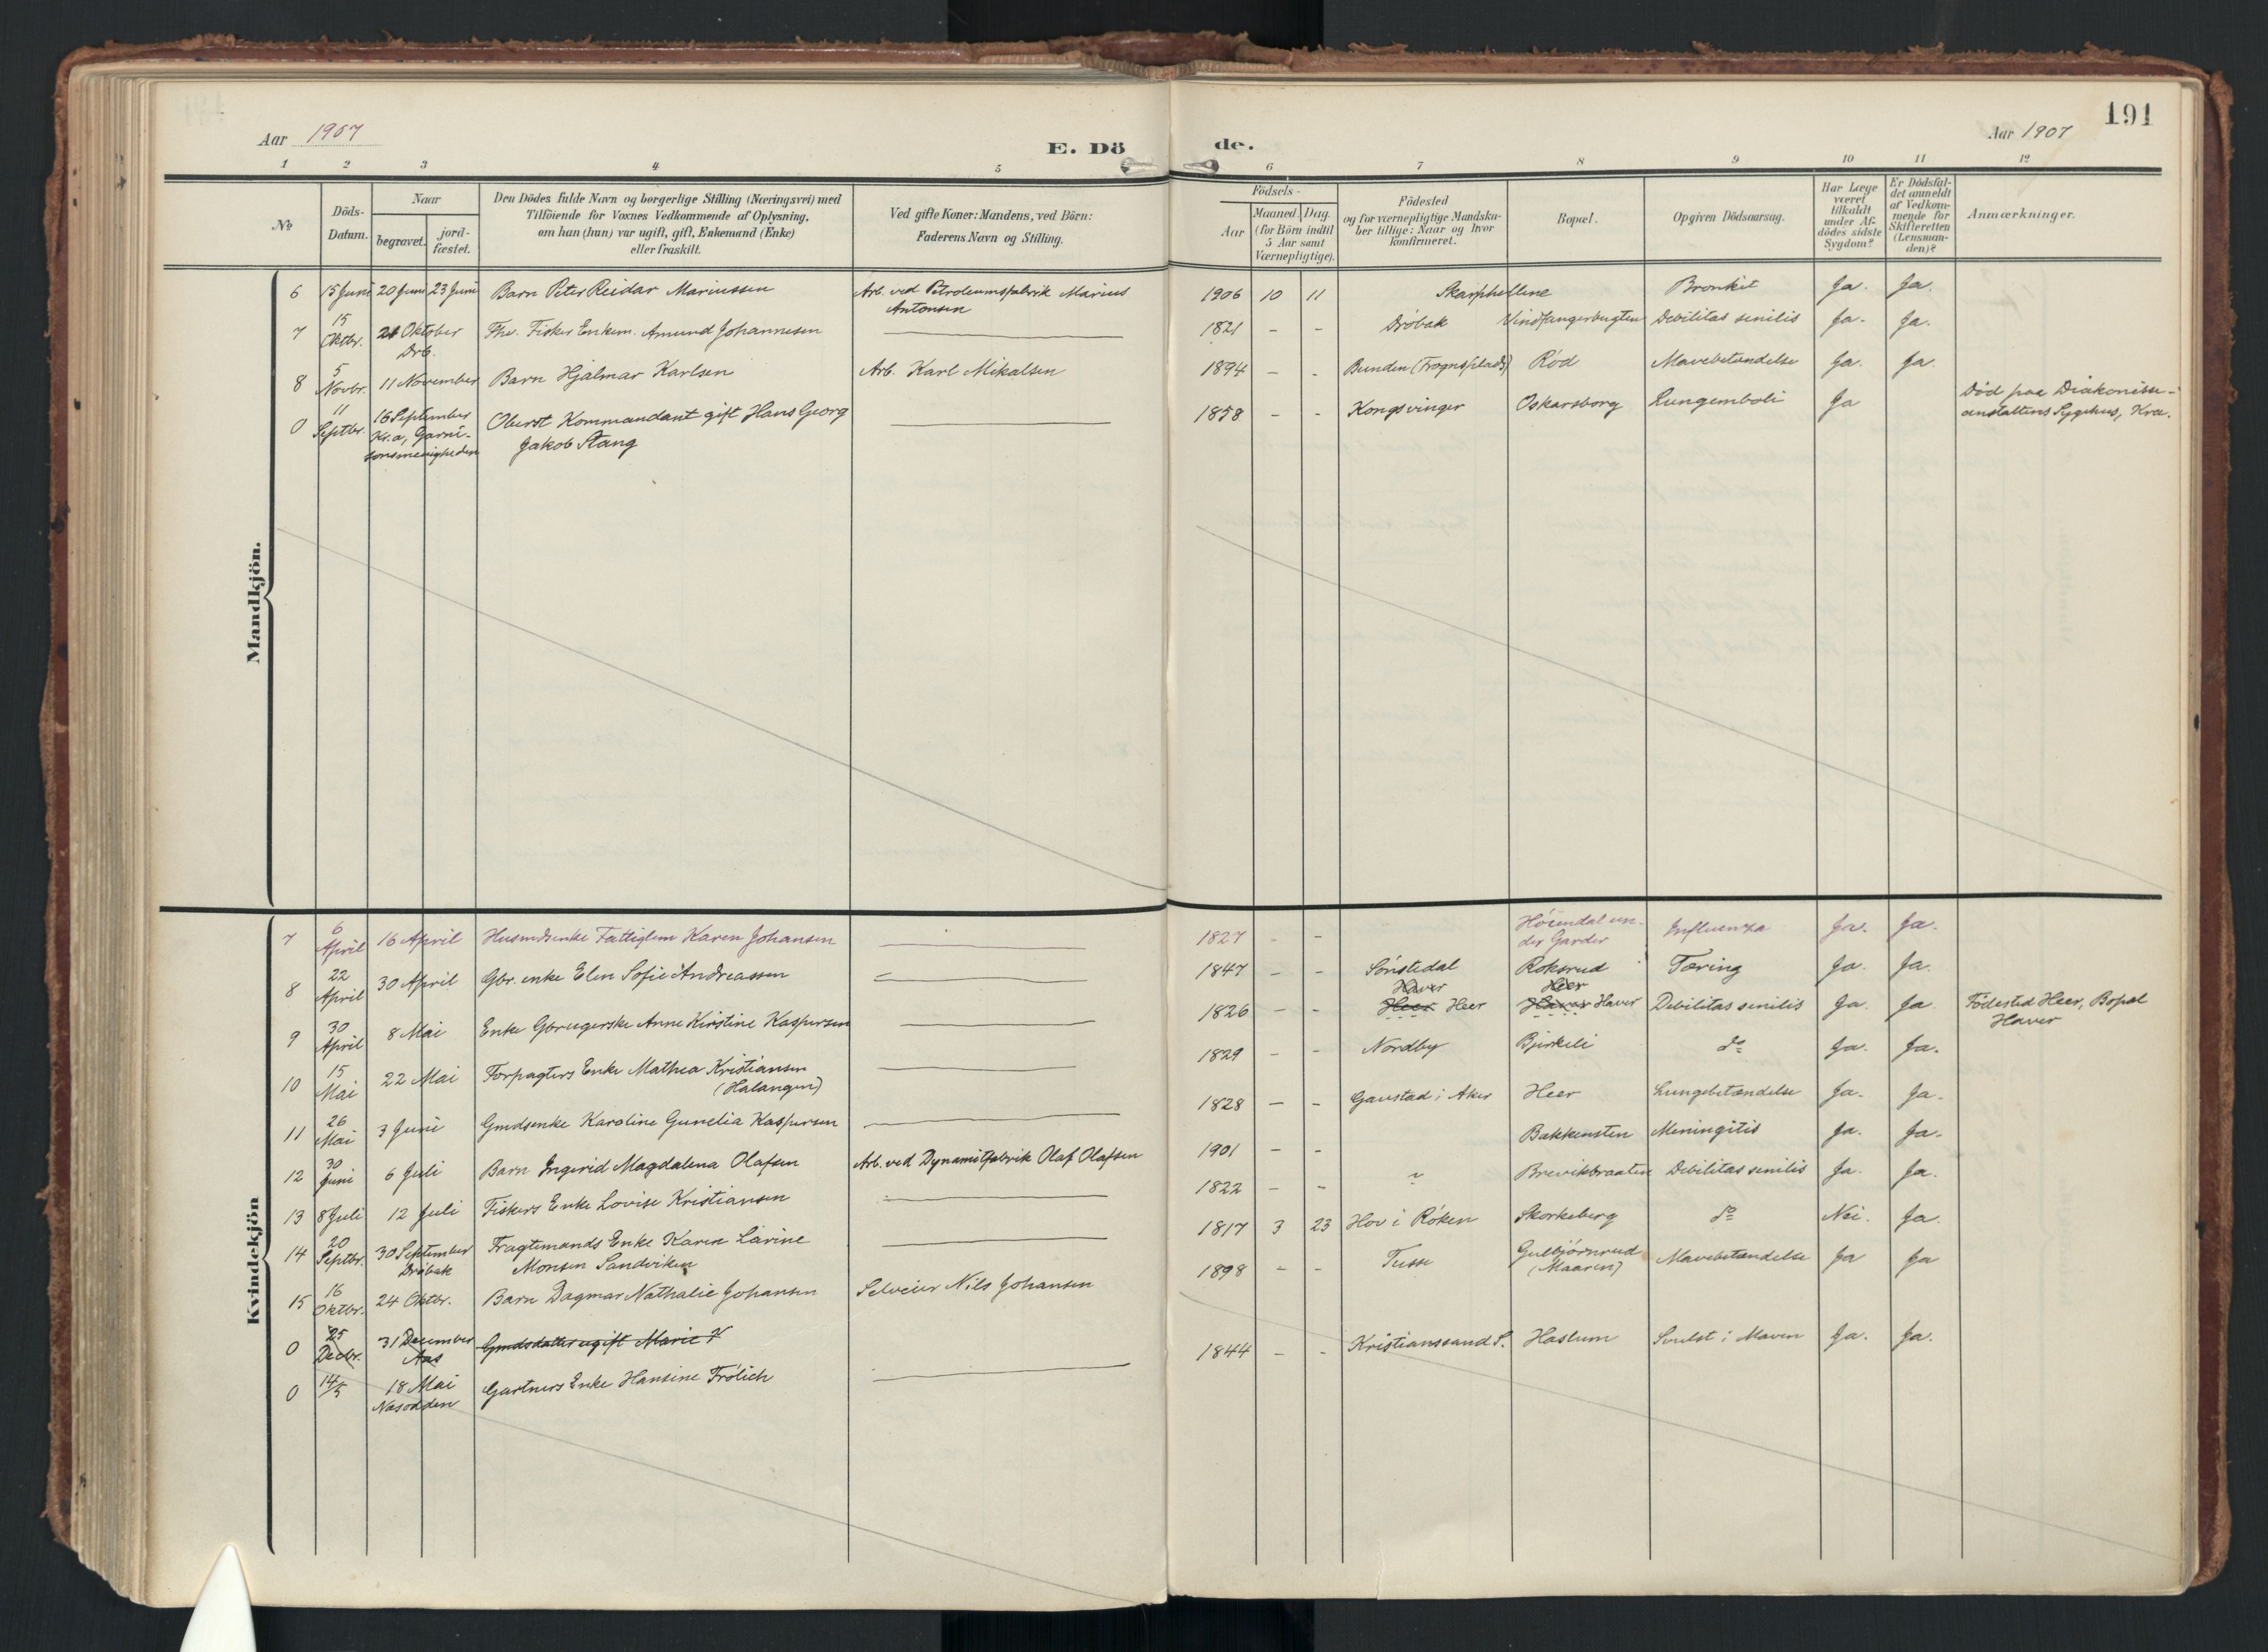 Aar 1907
E. Döde.
Aar 1907
191
1 2 3 4 5 6 7 8 9 10 11 12
No
Döds-Datum.
Naar
begravet.
jord-fæstet.
Den Dödes fulde Navn og borgerlige Stilling (Næringsvei) med
Tilföiende for Voxnes Vedkommende af Oplysning,
om han (hun) var ugift, gift, Enkemand (Enke)
eller fraskilt.
Ved gifte Koner: Mandens, ved Börn:
Faderens Navn og Stilling.
Födsels-
Aar
Maaned. Dag.
(for Börn indtil
5 Aar samt
Værnepligtige).
Födested
og for værnepligtige Mandska-
ber tillige: Naar og hvor
konfirmeret.
Bopæl.
Opgiven Dödsaarsag.
Har Læge
været
tilkaldt
under Af-
dödes sidste
Sygdom?
Er Dödsfal-
det anmeldt
af Vedkom-
mende for
Skifteretten
(Lensman-
den)?
Anmærkninger.
Mandkjön.
6 15 Juni 20 Juni 23 Juni Barn Peter Reidar Mariussen Arb. ved Petroleumsfabrik Marius Antonsen 1906 10 11 Skarphelline Bronkit Ja. Ja.
7 15 Oktbr. 21 Oktober Drb. Fhv. Fisker Enkem. Amund Johannesen — 1821 - - Dröbak Vindfangerbugten Debilitas senilis Ja. Ja.
8 5 Novbr. 11 November Barn Hjalmar Karlsen Arb. Karl Mikalsen 1894 - - Bunden (Frognsplads) Röd Mavebetændelse Ja. Ja.
0 11 Septbr. 16 September Kr.a, Garni-sonsmenigheden Oberst Kommandant gift Hans Georg Jakob Stang — 1858 - - Kongsvinger Oskarsborg Lungemboli Ja Död paa Diakonisse-anstaltens Sygehus, Kra.
Kvindekjön
7 6 April 16 April Husmdsenke Fattiglem Karen Johansen — 1827 - - Höiendal un-der Garder Influenza Ja. Ja.
8 22 April 30 April Gbr. enke Elen Sofie Andreassen — 1847 - - Sönstedal Roksrud Tæring Ja. Ja.
9 30 April 8 Mai Enke Gbrugerske Anne Kirstine Kaspersen — 1826 - - Haver Heer Heer Heer Haver Haver Debilitas senilis Ja. Ja Födested Heer, Bopæl Haver
10 15 Mai 22 Mai Forpagters Enke Mathea Kristiansen (Halangen) — 1829 - - Nordby Bjerkeli do Ja. Ja.
11 26 Mai 3 Juni Gmdsenke Karoline Gunelia Kaspersen — 1828 - - Gaustad i Aker Heer Lungebetændelse Ja. Ja.
12 30 Juni 6 Juli Barn Ingerid Magdalena Olafsen Arb. ved Dynamitfabrik Olaf Olafsen 1901 - - Bakkensten Meningitis Ja. Ja.
13 8 Juli 12 Juli Fiskers Enke Lovise Kristiansen — 1822 - - Brevikbraaten Debilitas senilis Ja. Ja.
14 20 Septbr. 30 September Dröbak Fragtemands Enke Karen Larine Monsen Sandviken — 1817 3 23 Hov i Röken Skorkeberg do Nei. Ja.
15 16 Oktbr. 24 Oktbr. Barn Dagmar Nathalie Johansen Selveier Nils Johansen 1898 - - Tusse Gulbjörnrud (Maaren) Mavebetændelse Ja Ja
0 25 Decbr. 31 December Aas Gmdsdatter ugift Marie K
0 14/5 18 Mai Næsodden Gartners Enke Hansine Frölich — 1844 - - Kristianssand S. Haslum Svulst i Maven Ja. Ja.